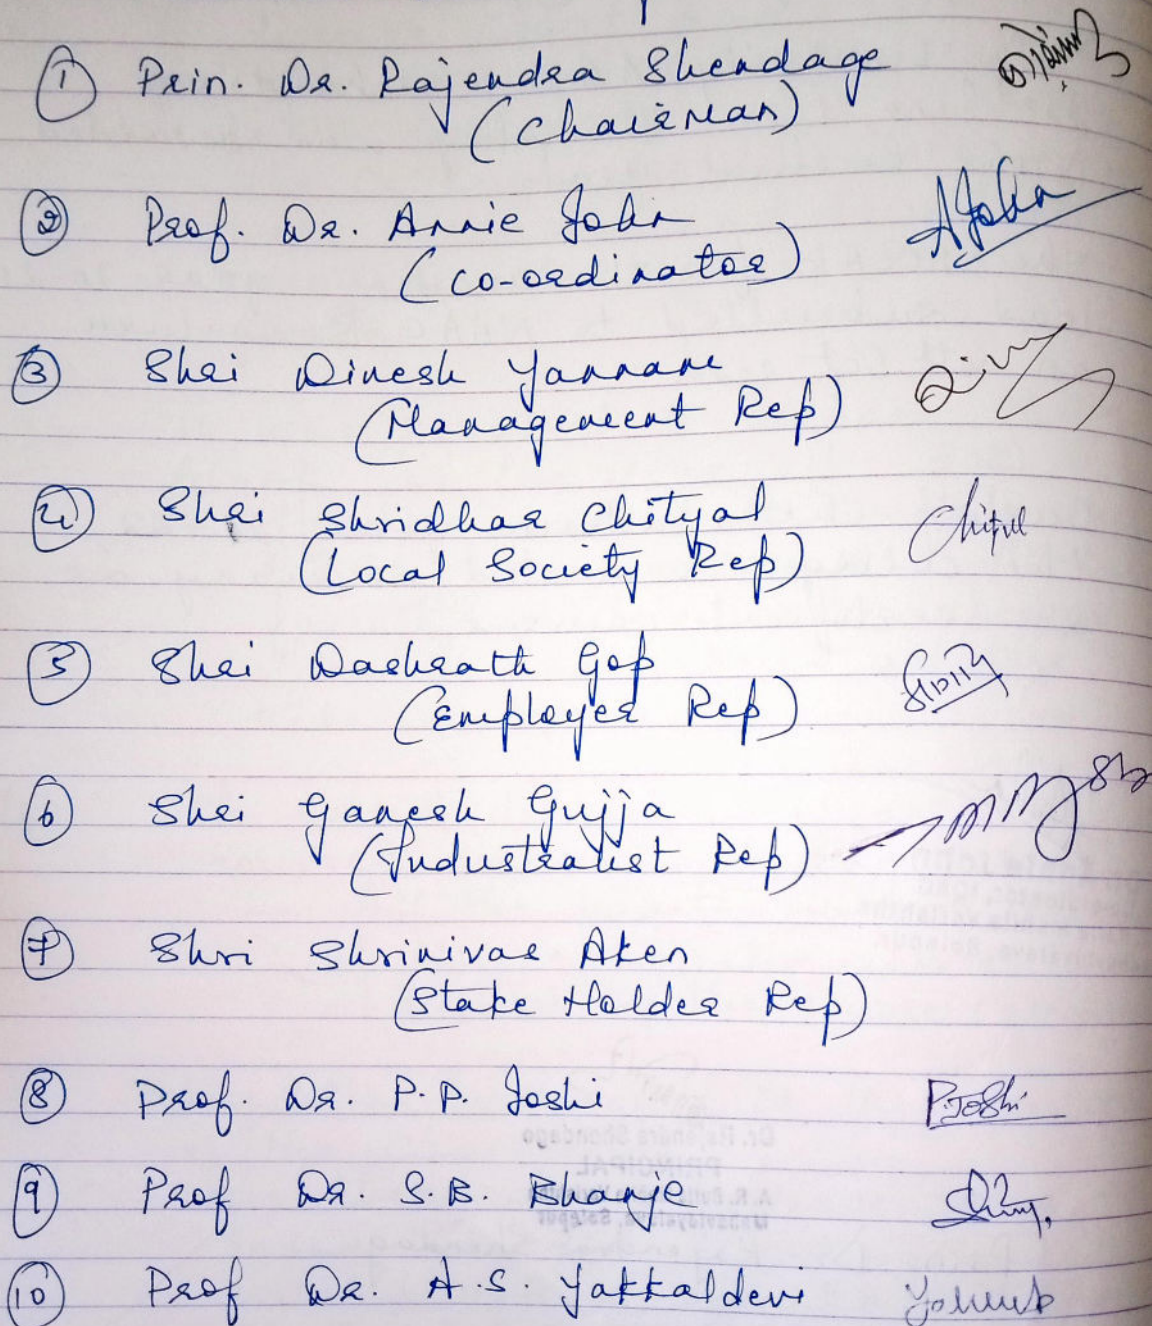 ① Prin. Dr. Rajendra Shendage
(Chairman)
② Prof. Dr. Annie John A.John
(co-ordinator)
③ Shri Dinesh Yannam
(Management Rep)
④ Shri Shridhar Chityal
(Local Society Rep)
⑤ Shri Dashrath Gop
(Employer Rep)
⑥ Shri Ganesh Gujja
(Industrialist Rep)
⑦ Shri Shrinivas Aken
(Stake Holder Rep)
⑧ Prof. Dr. P.P. Joshi P.Joshi
⑨ Prof Dr. S.B. Bhanje
⑩ Prof Dr. A.S. Yakkaldevi